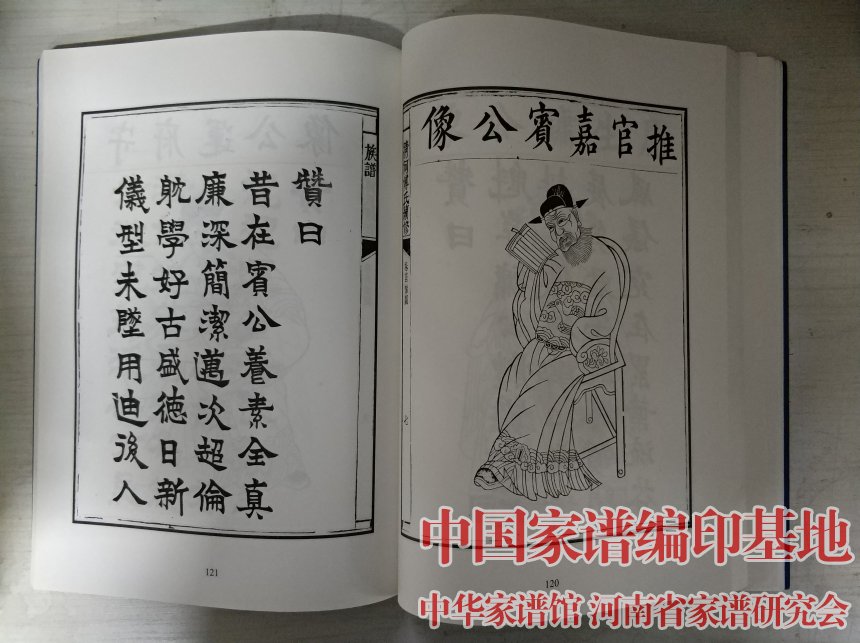 推官嘉賓公像
七
120
族譜
贊曰
昔在賓公養素全真
廉深簡潔邁次超倫
躭學好古盛德日新
儀型未墜用迪後人
121
中国家谱编印基地
中华家谱馆 河南省家谱研究会